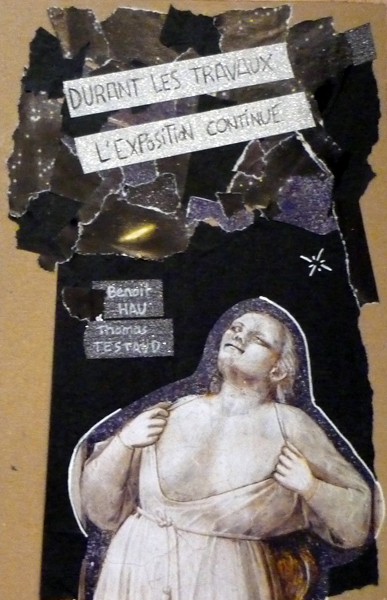 DURANT LES TRAVAUX
L'EXPOSITION CONTINUE
Benoit
HAU
Thomas